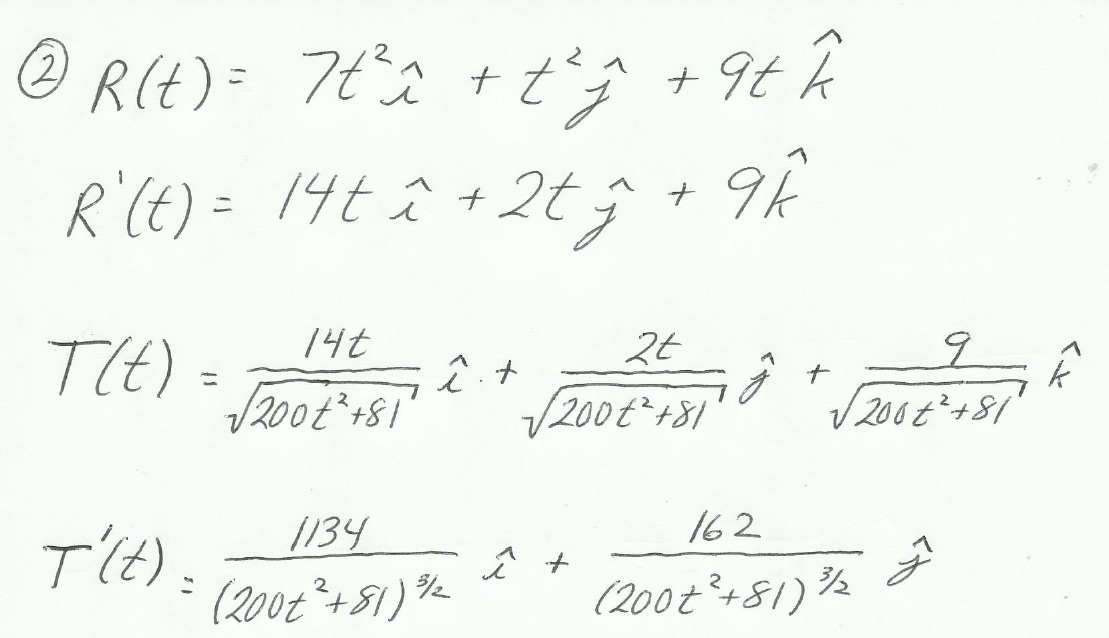 ② R(t) = 7t² î + t² ĵ + 9t k̂
R'(t) = 14t î + 2t ĵ + 9 k̂
T(t) = 14t/√(200t²+81) î + 2t/√(200t²+81) ĵ + 9/√(200t²+81) k̂
T'(t) = 1134/(200t²+81)^3/2 î + 162/(200t²+81)^3/2 ĵ